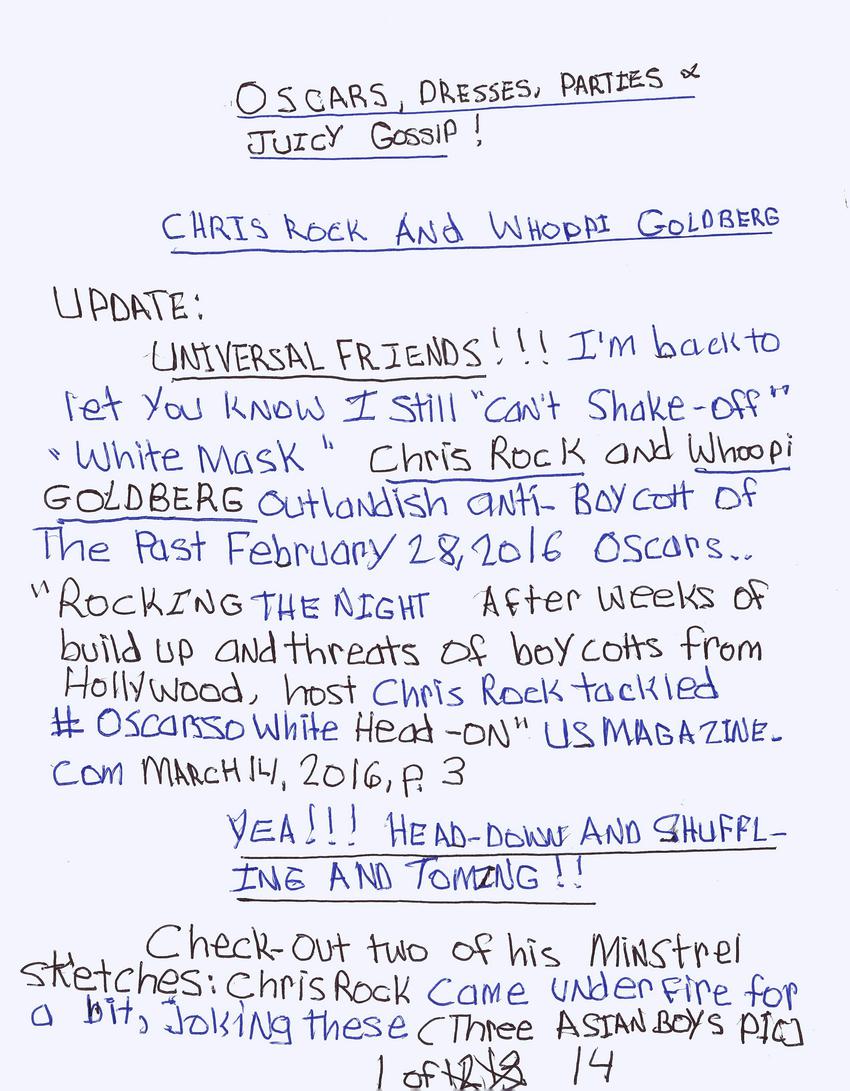 OSCARS, DRESSES, PARTIES &
JUICY GOSSIP!
CHRIS ROCK AND WHOPPI GOLDBERG
UPDATE:
UNIVERSAL FRIENDS!!! I'm back to
let You KNOW I Still "Can't Shake-off"
"White Mask" Chris Rock and Whoopi
GOLDBERG Outlandish anti-Boycott of
The Past February 28, 2016 Oscars..
"ROCKING THE NIGHT After weeks of
build up and threats of boycotts from
Hollywood, host Chris Rock tackled
# OSCARSSO White Head-ON" US MAGAZINE.
Com MARCH 14, 2016, P. 3
YEA!!! HEAD-DOWN AND SHUFFL-
ING AND TOMING!!
Check-Out two of his Minstrel
sketches: Chris Rock Came under Fire for
a bit, Joking these (Three ASIAN BOYS PIC)
1 of 14